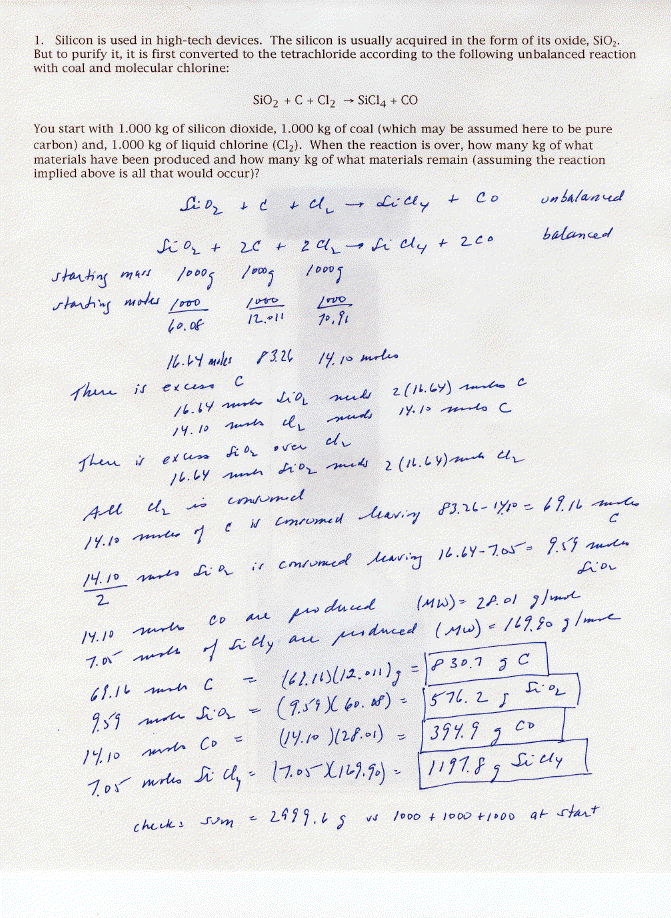 1. Silicon is used in high-tech devices. The silicon is usually acquired in the form of its oxide, SiO₂.
But to purify it, it is first converted to the tetrachloride according to the following unbalanced reaction
with coal and molecular chlorine:
SiO₂ + C + Cl₂ → SiCl₄ + CO
You start with 1.000 kg of silicon dioxide, 1.000 kg of coal (which may be assumed here to be pure
carbon) and, 1.000 kg of liquid chlorine (Cl₂). When the reaction is over, how many kg of what
materials have been produced and how many kg of what materials remain (assuming the reaction
implied above is all that would occur)?
SiO₂ + C + Cl₂ → SiCl₄ + CO unbalanced
SiO₂ + 2C + 2Cl₂ → SiCl₄ + 2CO balanced
starting mass 1000g 1000g 1000g
starting moles 1000 1000 1000
60.08 12.011 70.91
16.64 moles 83.26 14.10 moles
There is excess C
16.64 moles SiO₂ needs 2(16.64) moles C
14.10 moles Cl₂ needs 14.10 moles C
There is excess SiO₂ over Cl₂
16.64 moles SiO₂ needs 2(16.64) moles Cl₂
All Cl₂ is consumed
14.10 moles of C is consumed leaving 83.26-14.10 = 69.16 moles
C
14.10 moles SiO₂ is consumed leaving 16.64-7.05 = 9.59 moles
2 SiO₂
14.10 moles CO are produced (MW) = 28.01 g/mole
7.05 moles of SiCl₄ are produced (MW) = 169.90 g/mole
69.16 moles C = (69.16)(12.011)g = 830.7 g C
9.59 moles SiO₂ = (9.59)(60.08) = 576.2 g SiO₂
14.10 moles CO = (14.10)(28.01) = 394.9 g CO
7.05 moles SiCl₄ = (7.05)(169.90) = 1197.8 g SiCl₄
checks sum = 2999.6 g vs 1000 + 1000 + 1000 at start